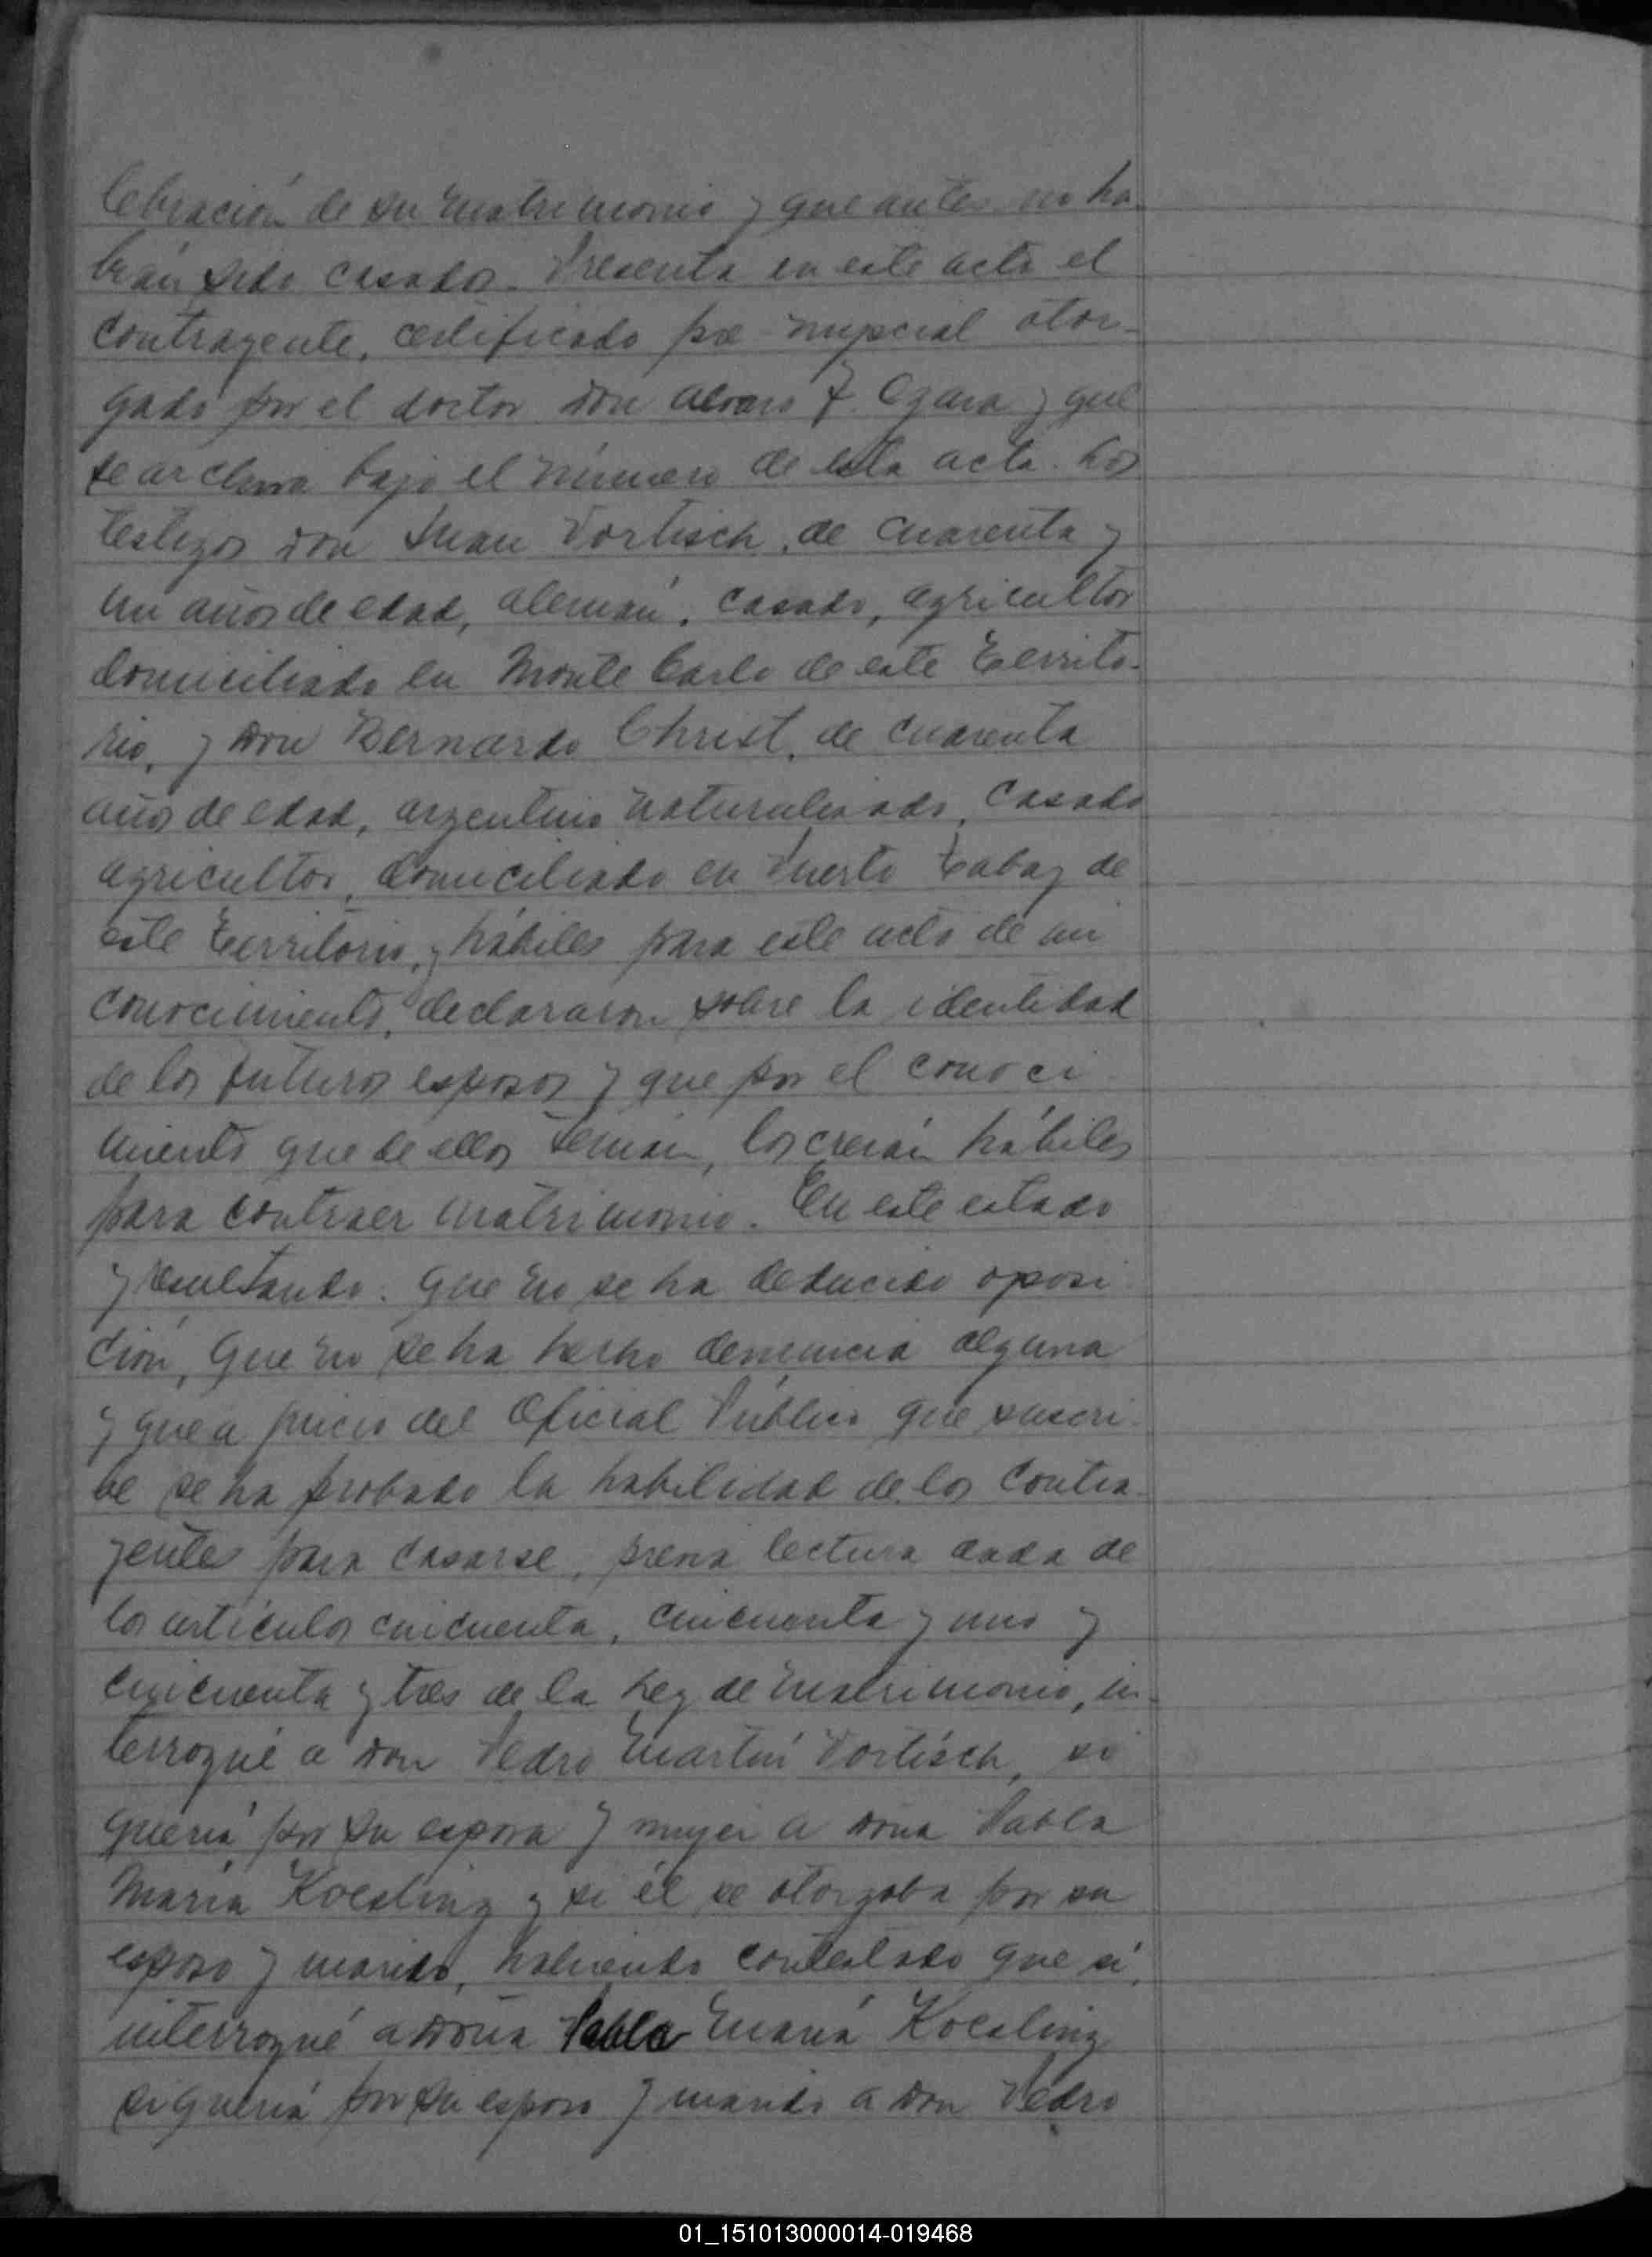 lebración de su matrimonio y que antes no ha-
bían sido casados. Presenta en este acto el
contrayente, certificado pre-nupcial otor-
gado por el doctor don Alvaro F. Ozara y que
se archiva bajo el número de esta acta. Los
testigos don Juan Vortisch, de cuarenta y
un años de edad, alemán, casado, agricultor
domiciliado en Monte Carlo de este Territo-
rio, y don Bernardo Christ, de cuarenta
años de edad, argentino naturalizado, casado
agricultor, domiciliado en Puerto Tabay de
este Territorio, y hábiles para este acto de mi
conocimiento, declararon sobre la identidad
de los futuros esposos y que por el conoci
miento que de ellos tenían, los creían hábiles
para contraer matrimonio. En este estado
y resultando: Que no se ha deducido oposi
ción, Que no se ha hecho denuncia alguna
y que a juicio del Oficial Público que suscri-
be se ha probado la habilidad de los contra-
yentes para casarse, previa lectura dada de
los artículos cincuenta, cincuenta y uno y
cincuenta y tres de la Ley de Matrimonio, in-
terrogué a don Pedro Martín Vortisch, si
quería por su esposa y mujer a doña Pabla
María Koesling y si él se otorgaba por su
esposo y marido, habiendo contestado que sí,
interrogué a doña Pabla María Koesling
si quería por su esposo y marido a don Pedro
01_151013000014-019468